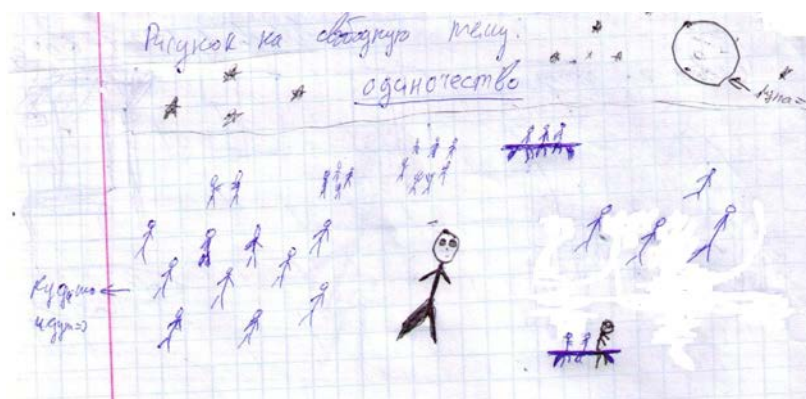 Рисунок на свободную тему:
одиночество
Луна
Куда-то
идут=>